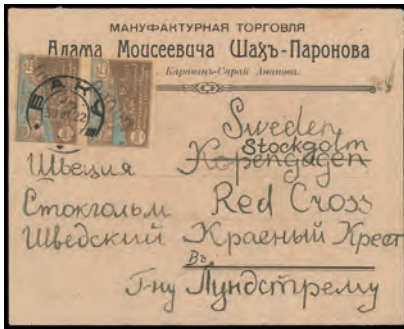 МАНУФАКТУРНАЯ ТОРГОВЛЯ
Адама Моисеевича Шахъ-Паронова
Караванъ-Сарай Ананова.
БАКУ
Sweden
Stockgolm
Швеция Kopengagen
Стокгольм Red Cross
Шведский Красный Крест
Въ
Г-ну Лундстрему